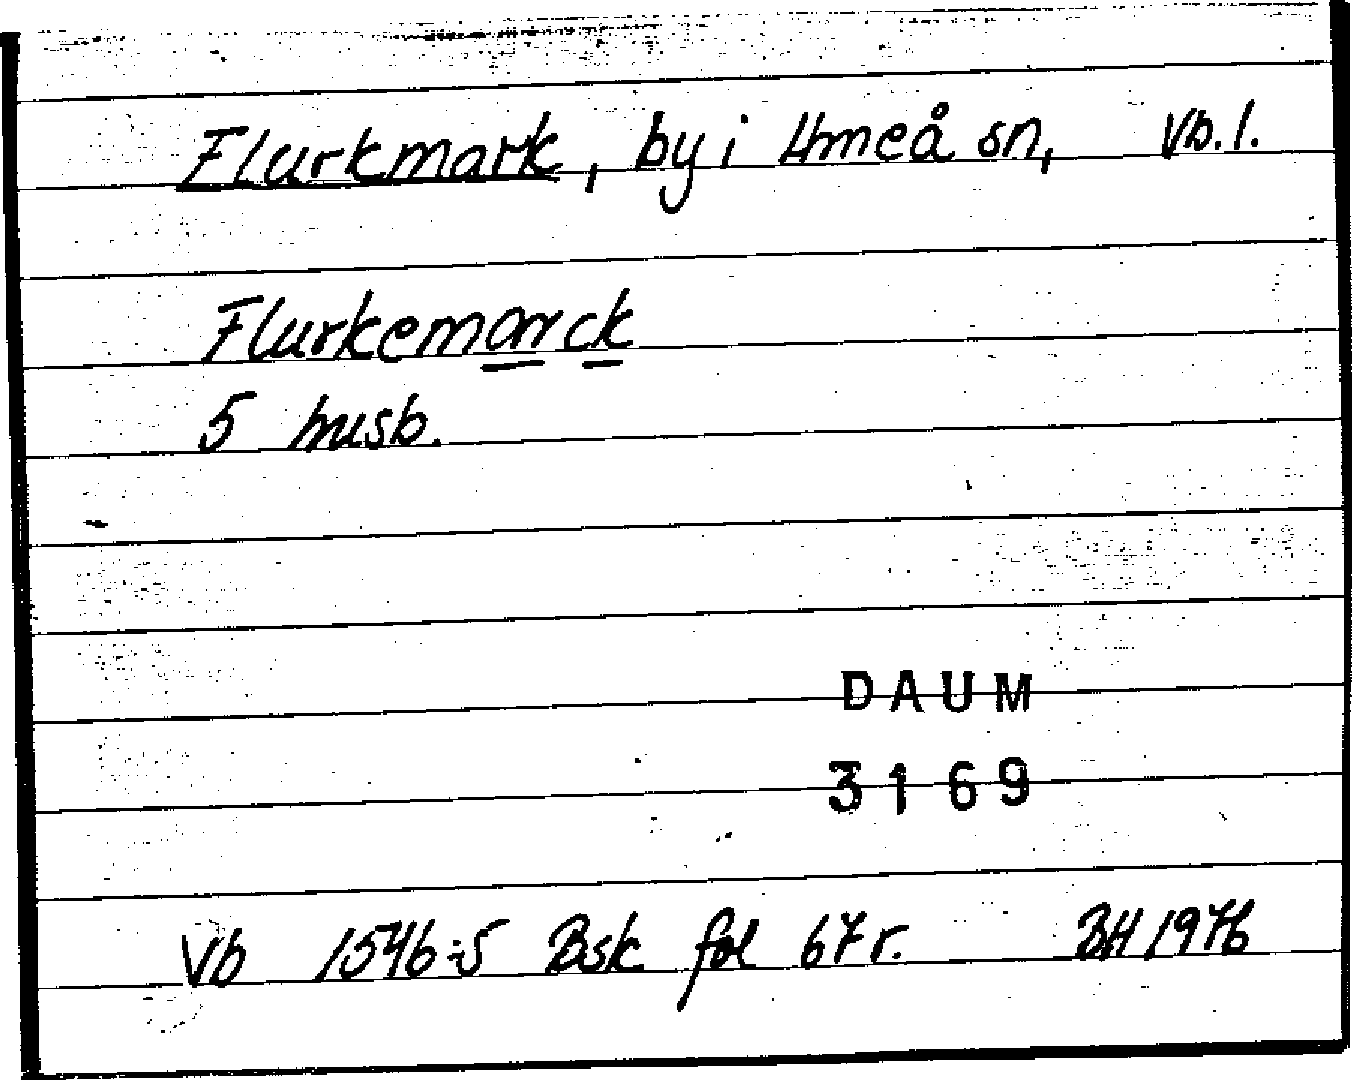 Flurkmark, by i Umeå sn, Vb. l.
Flurkemarck
5 husb.
DAUM
3169
Vb 1546:5 Bsk fol 67 r. BH 1976